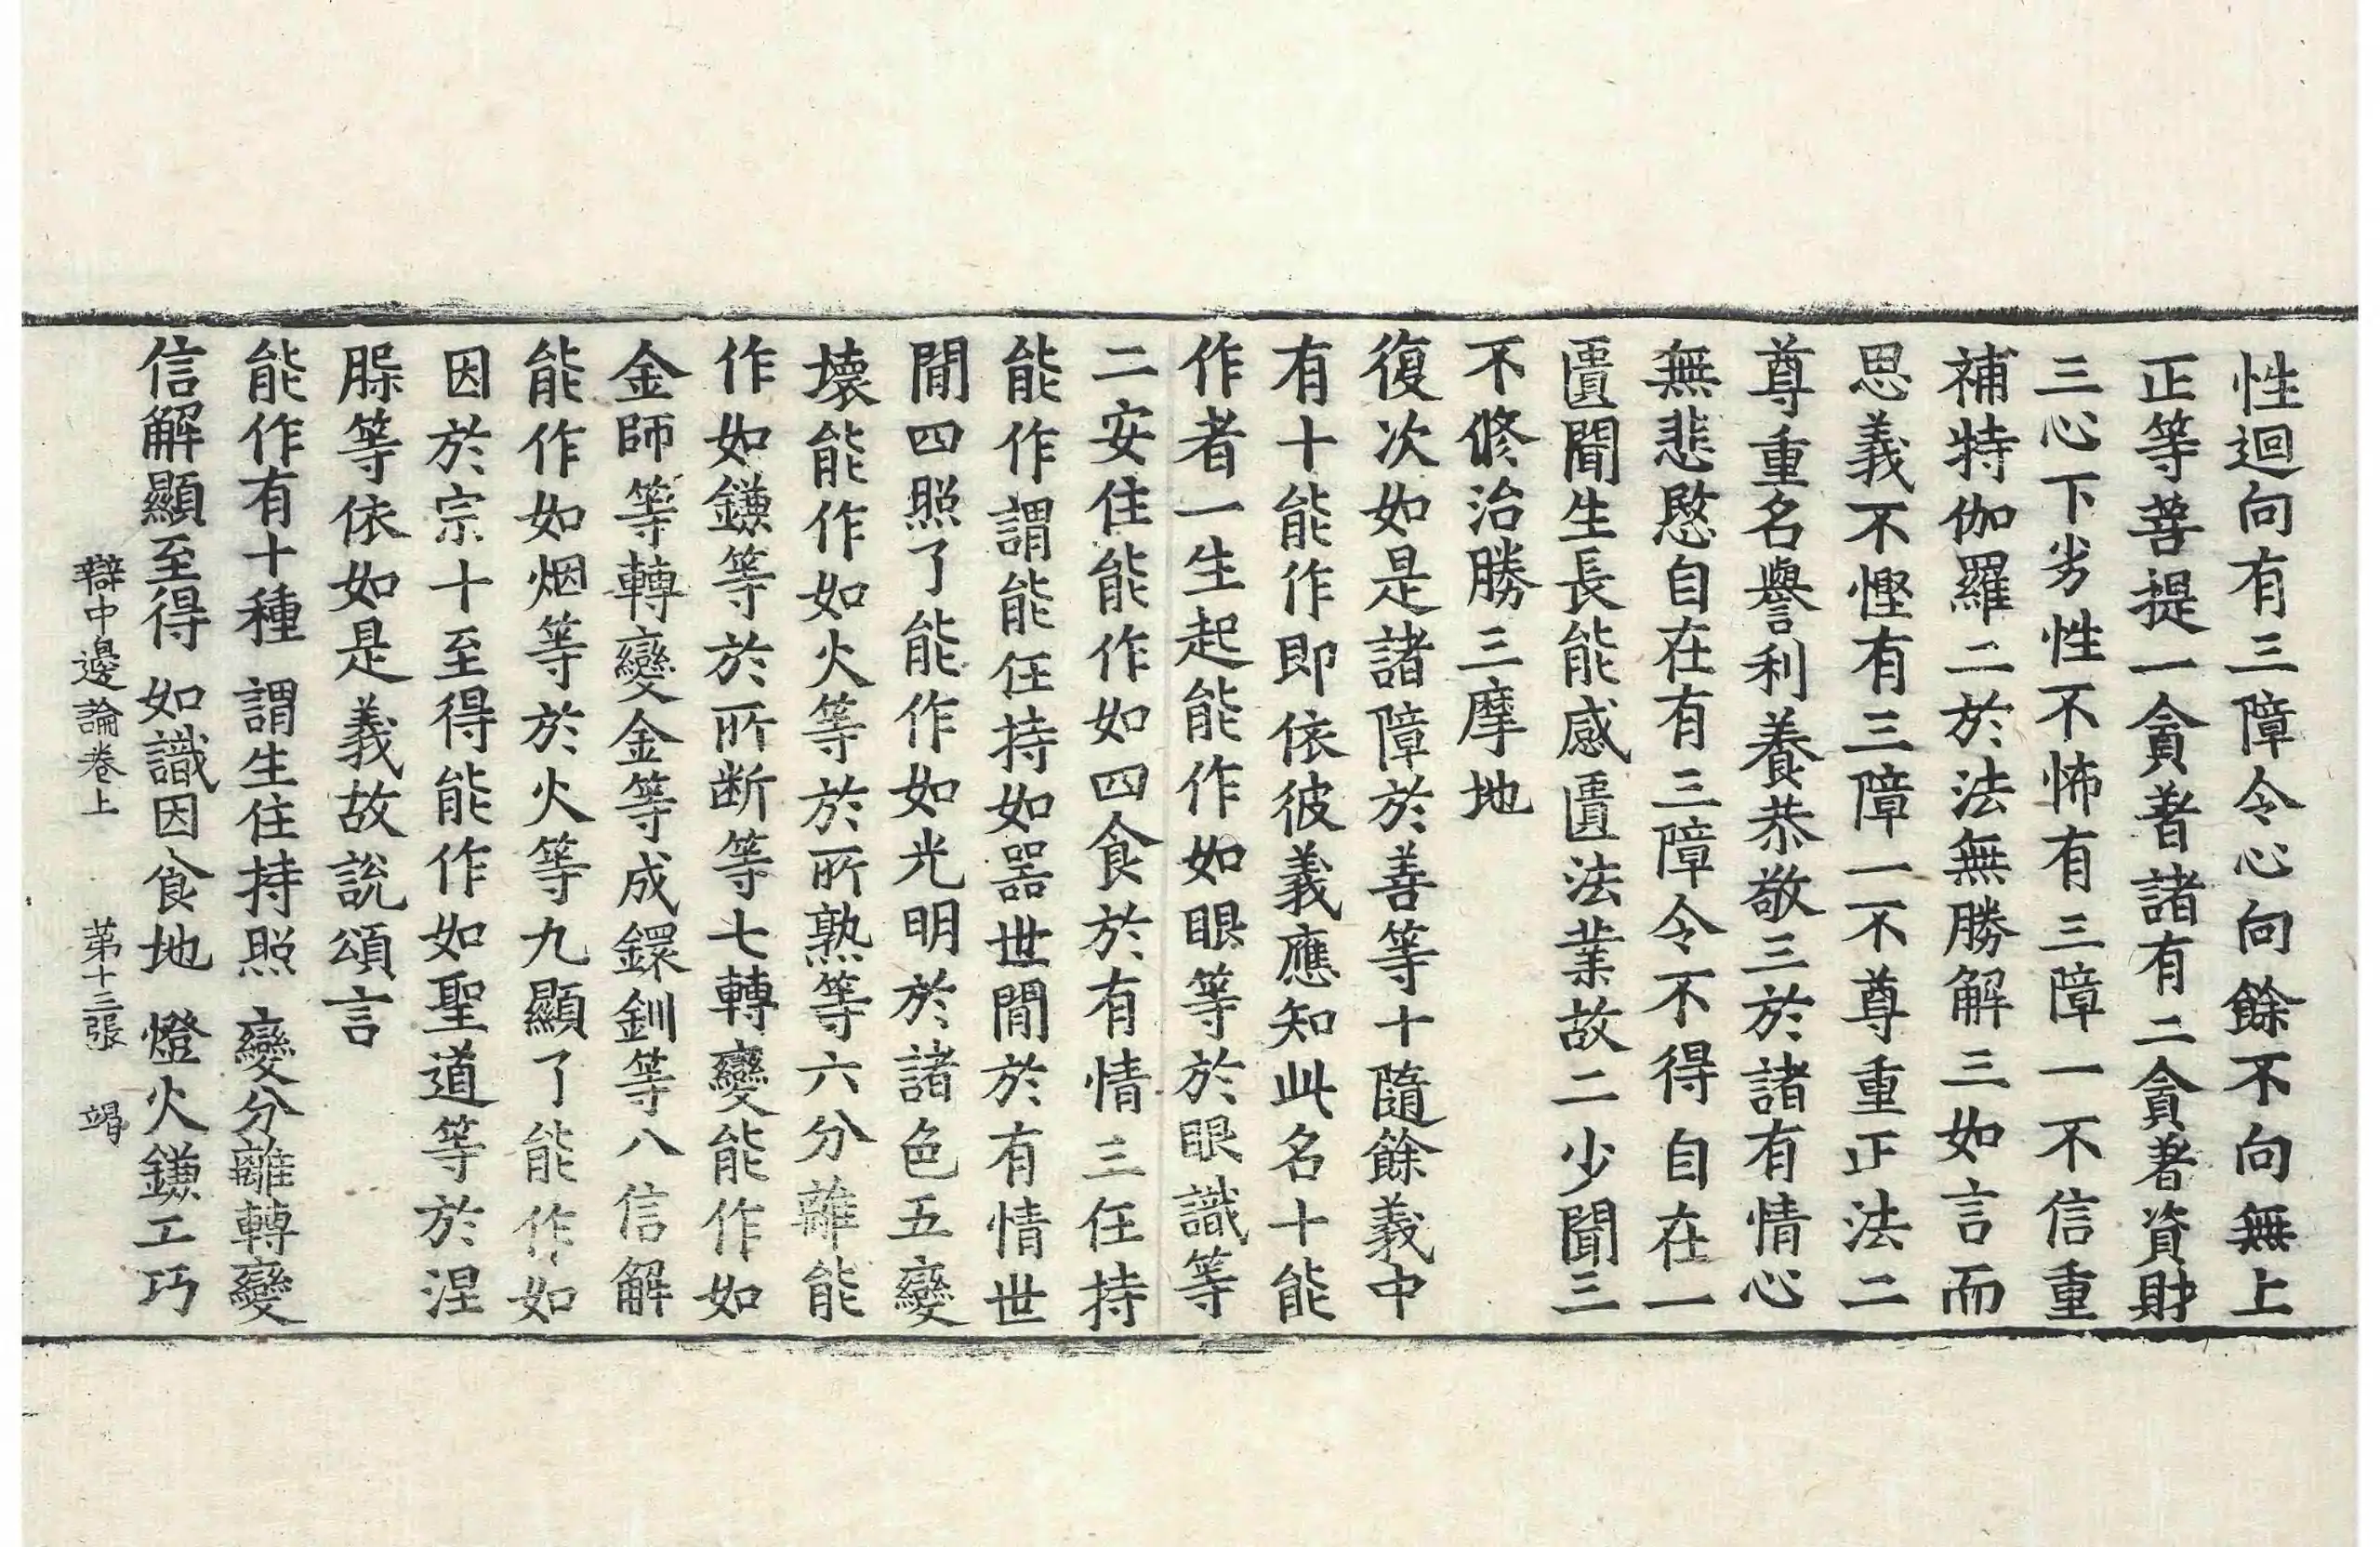 性迴向有三障令心向餘不向無上
正等菩提一貪著諸有二貪著資財
三心下劣性不怖有三障一不信重
補特伽羅二於法無勝解三如言而
思義不慳有三障一不尊重正法二
尊重名譽利養恭敬三於諸有情心
無悲愍自在有三障令不得自在一
匱聞生長能感匱法業故二少聞三
不修治勝三摩地
復次如是諸障於善等十隨餘義中
有十能作即依彼義應知此名十能
作者一生起能作如眼等於眼識等
二安住能作如四食於有情三任持
能作謂能任持如器世間於有情世
間四照了能作如光明於諸色五變
壞能作如火等於所熟等六分離能
作如鎌等於所断等七轉變能作如
金師等轉變金等成鐶釧等八信解
能作如烟等於火等九顯了能作如
因於宗十至得能作如聖道等於涅
縏等依如是義故說頌言
能作有十種 謂生住持照 變分離轉變
信解顯至得 如識因食地 燈火鎌工巧
辯中邊論卷上 苐十三張